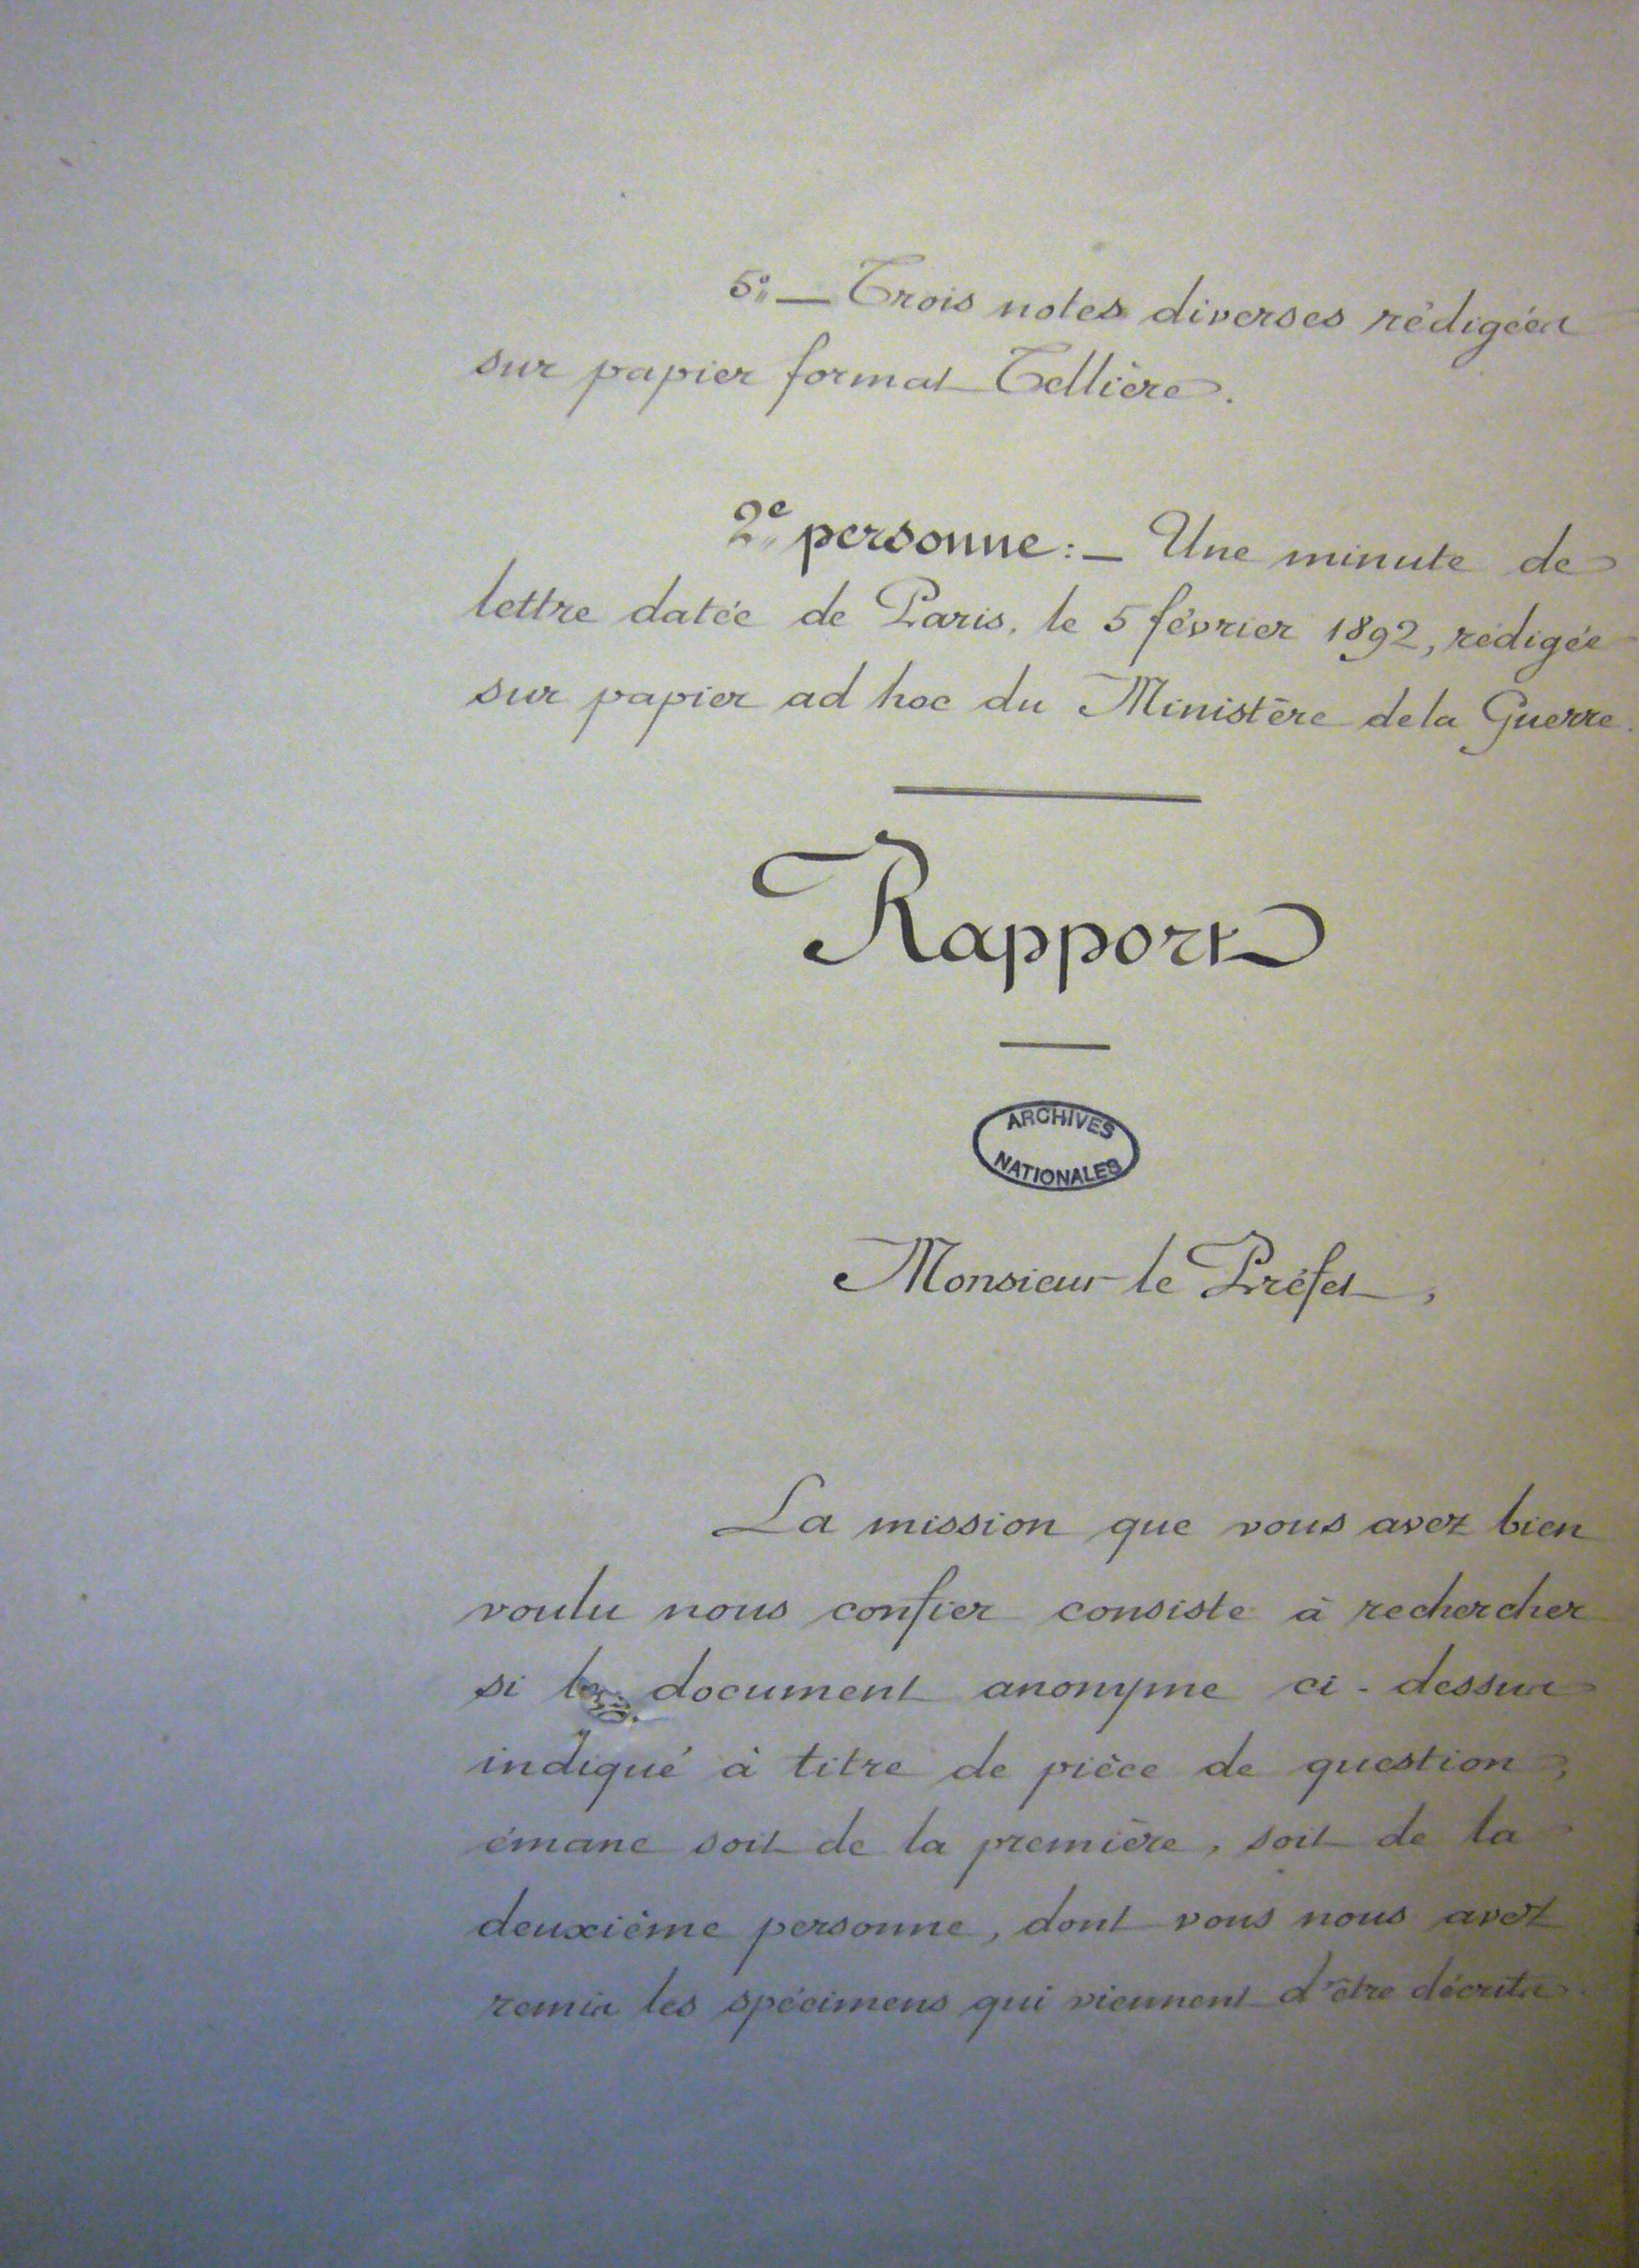 5°. — Trois notes diverses rédigées
sur papier format Tellière.
2e personne : — Une minute de
lettre datée de Paris, le 5 février 1892, rédigée
sur papier ad hoc du Ministère de la Guerre.
Rapport
ARCHIVES
NATIONALES
Monsieur le Préfet,
La mission que vous avez bien
voulu nous confier consiste à rechercher
si le document anonyme ci-dessus
indiqué à titre de pièce de question,
émane soit de la première, soit de la
deuxième personne, dont vous nous avez
remis les spécimens qui viennent d'être décrits.